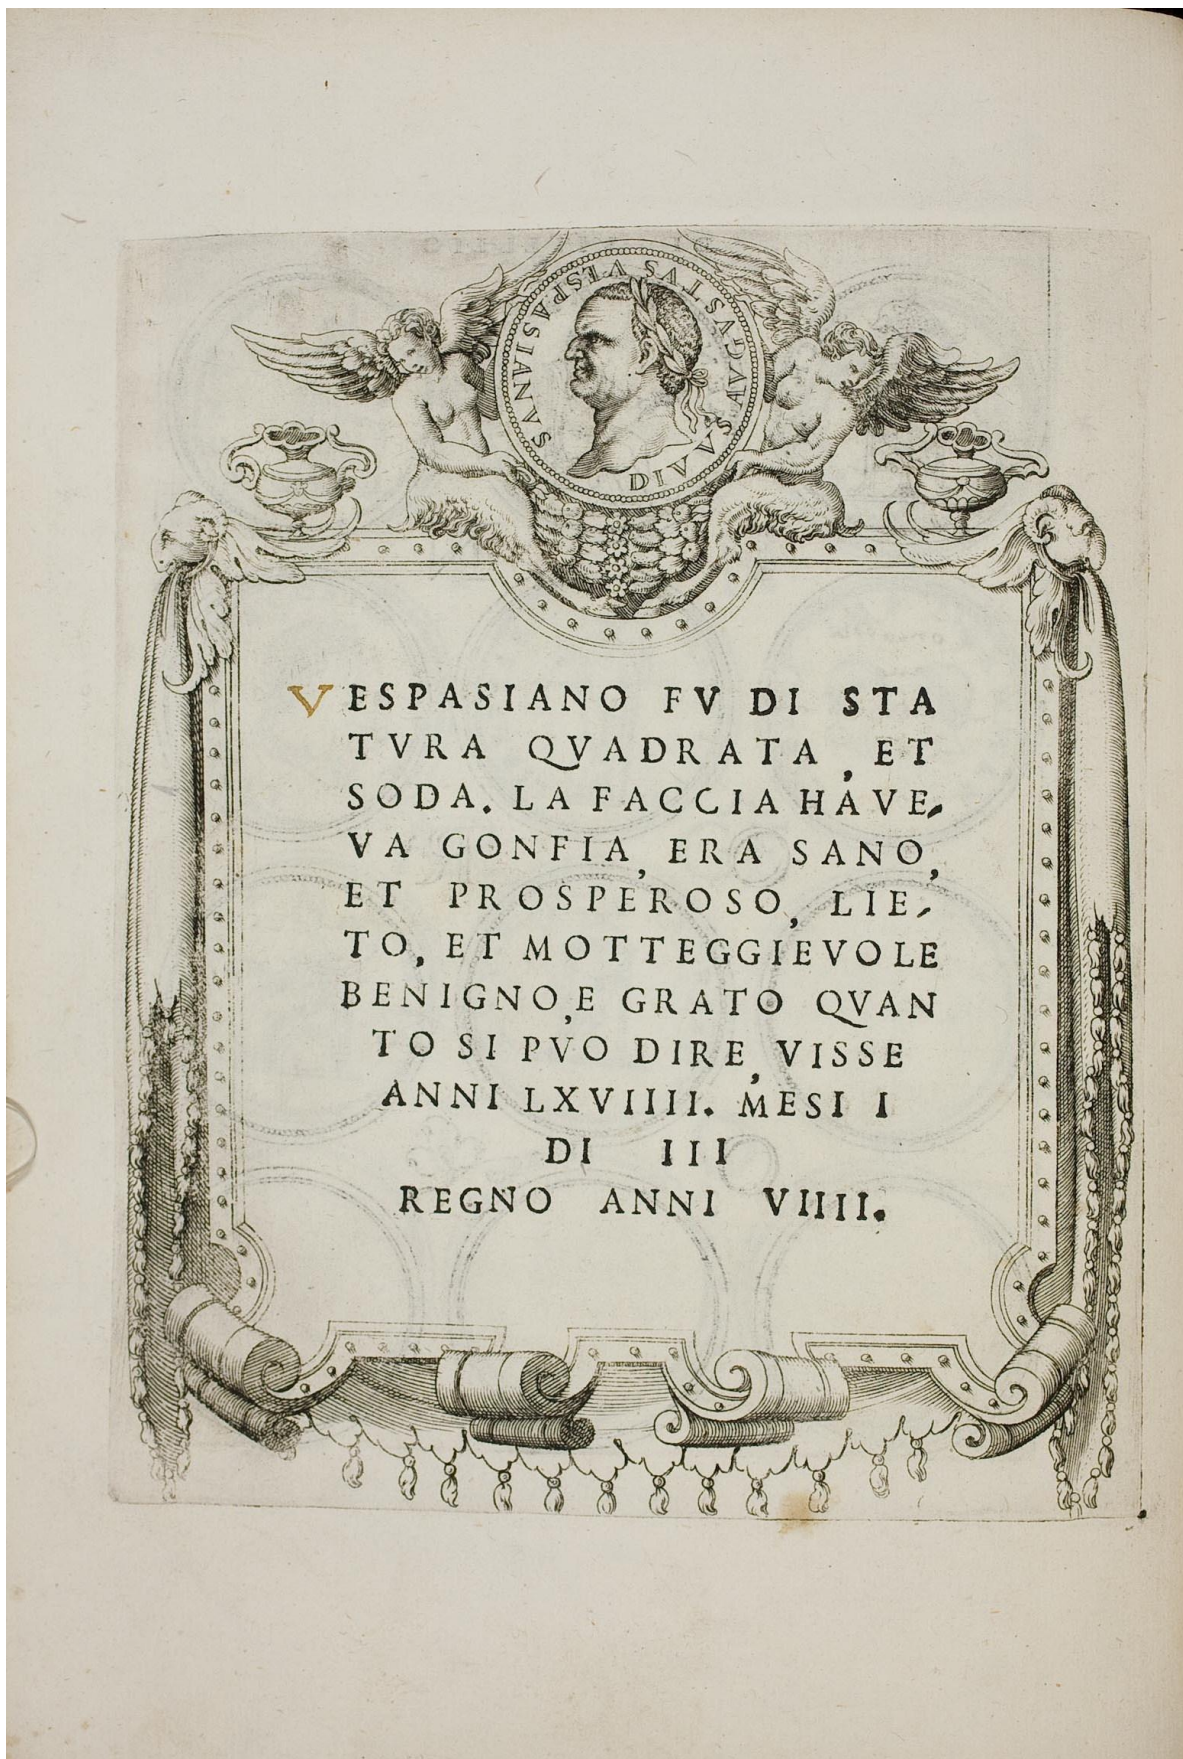 DIVVS AVGVSTVS VESPASIANVS
VESPASIANO FV DI STA
TVRA QVADRATA, ET
SODA. LA FACCIA HAVE-
VA GONFIA, ERA SANO,
ET PROSPEROSO, LIE-
TO, ET MOTTEGGIEVOLE
BENIGNO, E GRATO QVAN
TO SI PVO DIRE, VISSE
ANNI LXVIIII. MESI I
DI III
REGNO ANNI VIIII.